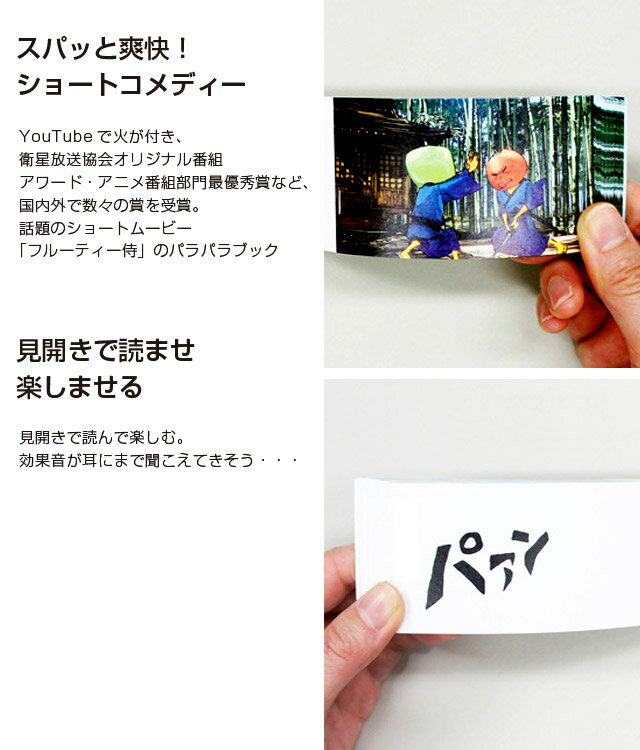 スパッと爽快！
ショートコメディー
YouTubeで火が付き、
衛星放送協会オリジナル番組
アワード・アニメ番組部門最優秀賞など、
国内外で数々の賞を受賞。
話題のショートムービー
「フルーティー侍」のパラパラブック
見開きで読ませ
楽しませる
見開きで読んで楽しむ。
効果音が耳にまで聞こえてきそう・・・
パァン